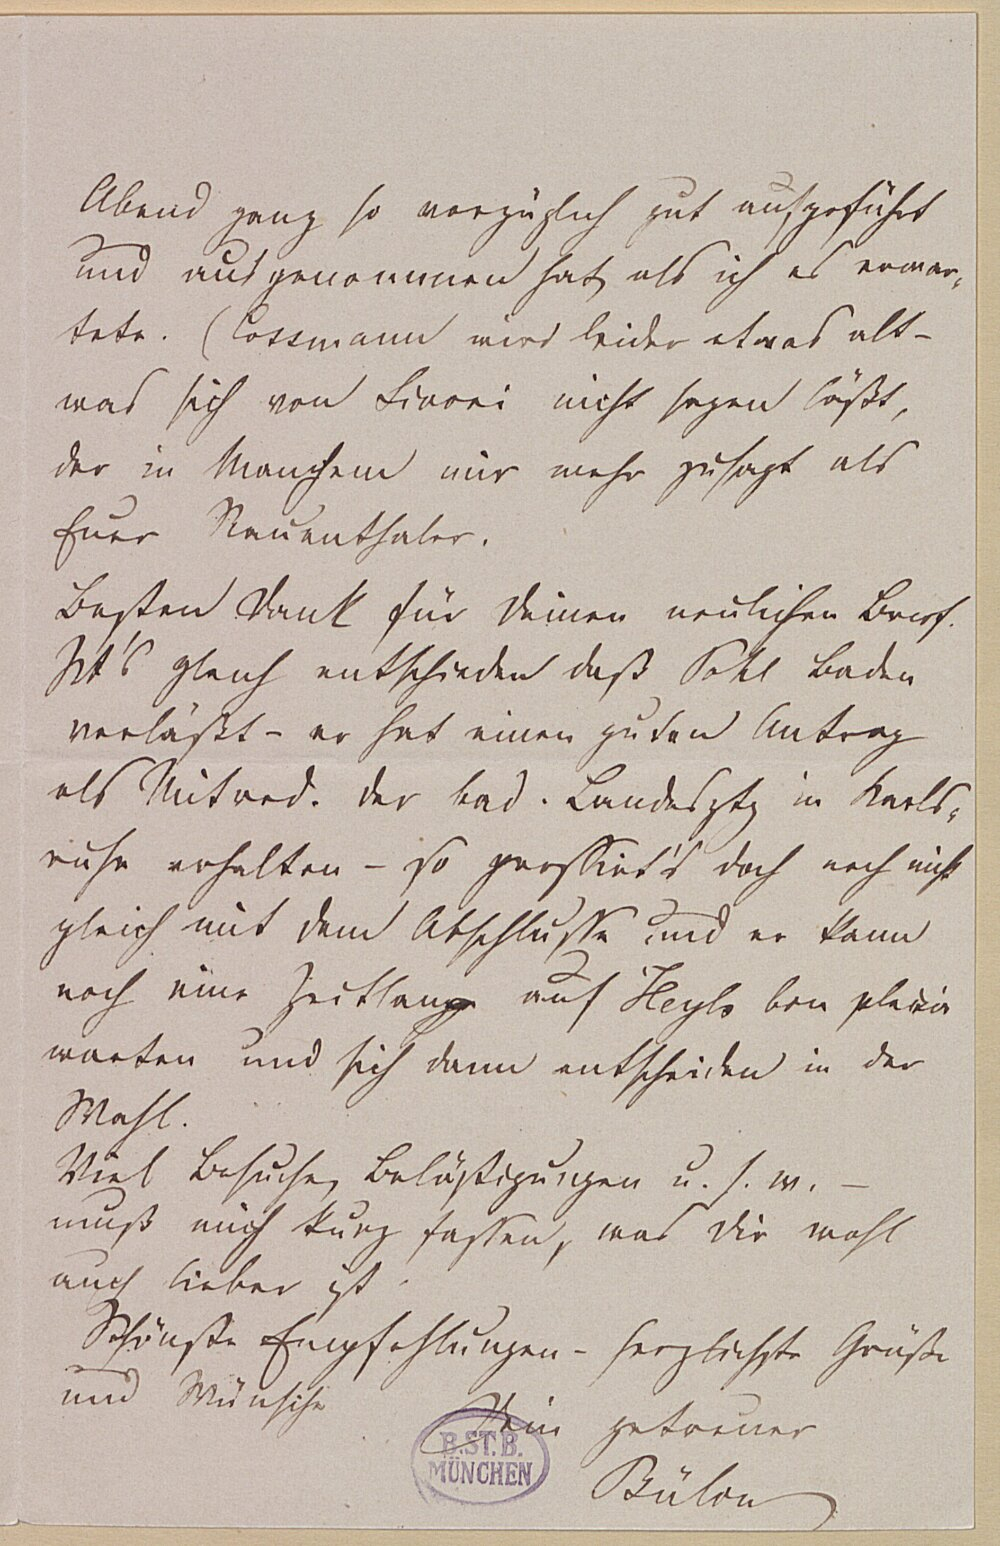 Abend ganz so vorzüglich gut aufgeführt
und aufgenommen hat, als ich es erwar-
tete. (Cossmann wird leider etwas alt –
was sich von Sivori nicht sagen läßt,
der in Manchem mir mehr zusagt als
Euer Rauenthaler.
Besten Dank für Deinen neulichen Brief.
Ist's gleich entschieden daß Pohl Baden
verläßt – er hat einen guten Antrag
als Mitred. der bad. Landesztg in Karls-
ruhe erhalten – so pressirt's doch noch nicht
gleich mit dem Abschlusse und er kann
noch eine Zeitlang auf Heyls bon plaisir
warten und sich dann entscheiden in der
Wahl.
Viel Besuche, Belästigungen u. s. w. –
muß mich kurz fassen, was Dir wohl
auch lieber ist.
Schönste Empfehlungen – herzlichste Grüße
und Wünsche
Dein getreuer
Bülow
B.ST.B.
MÜNCHEN